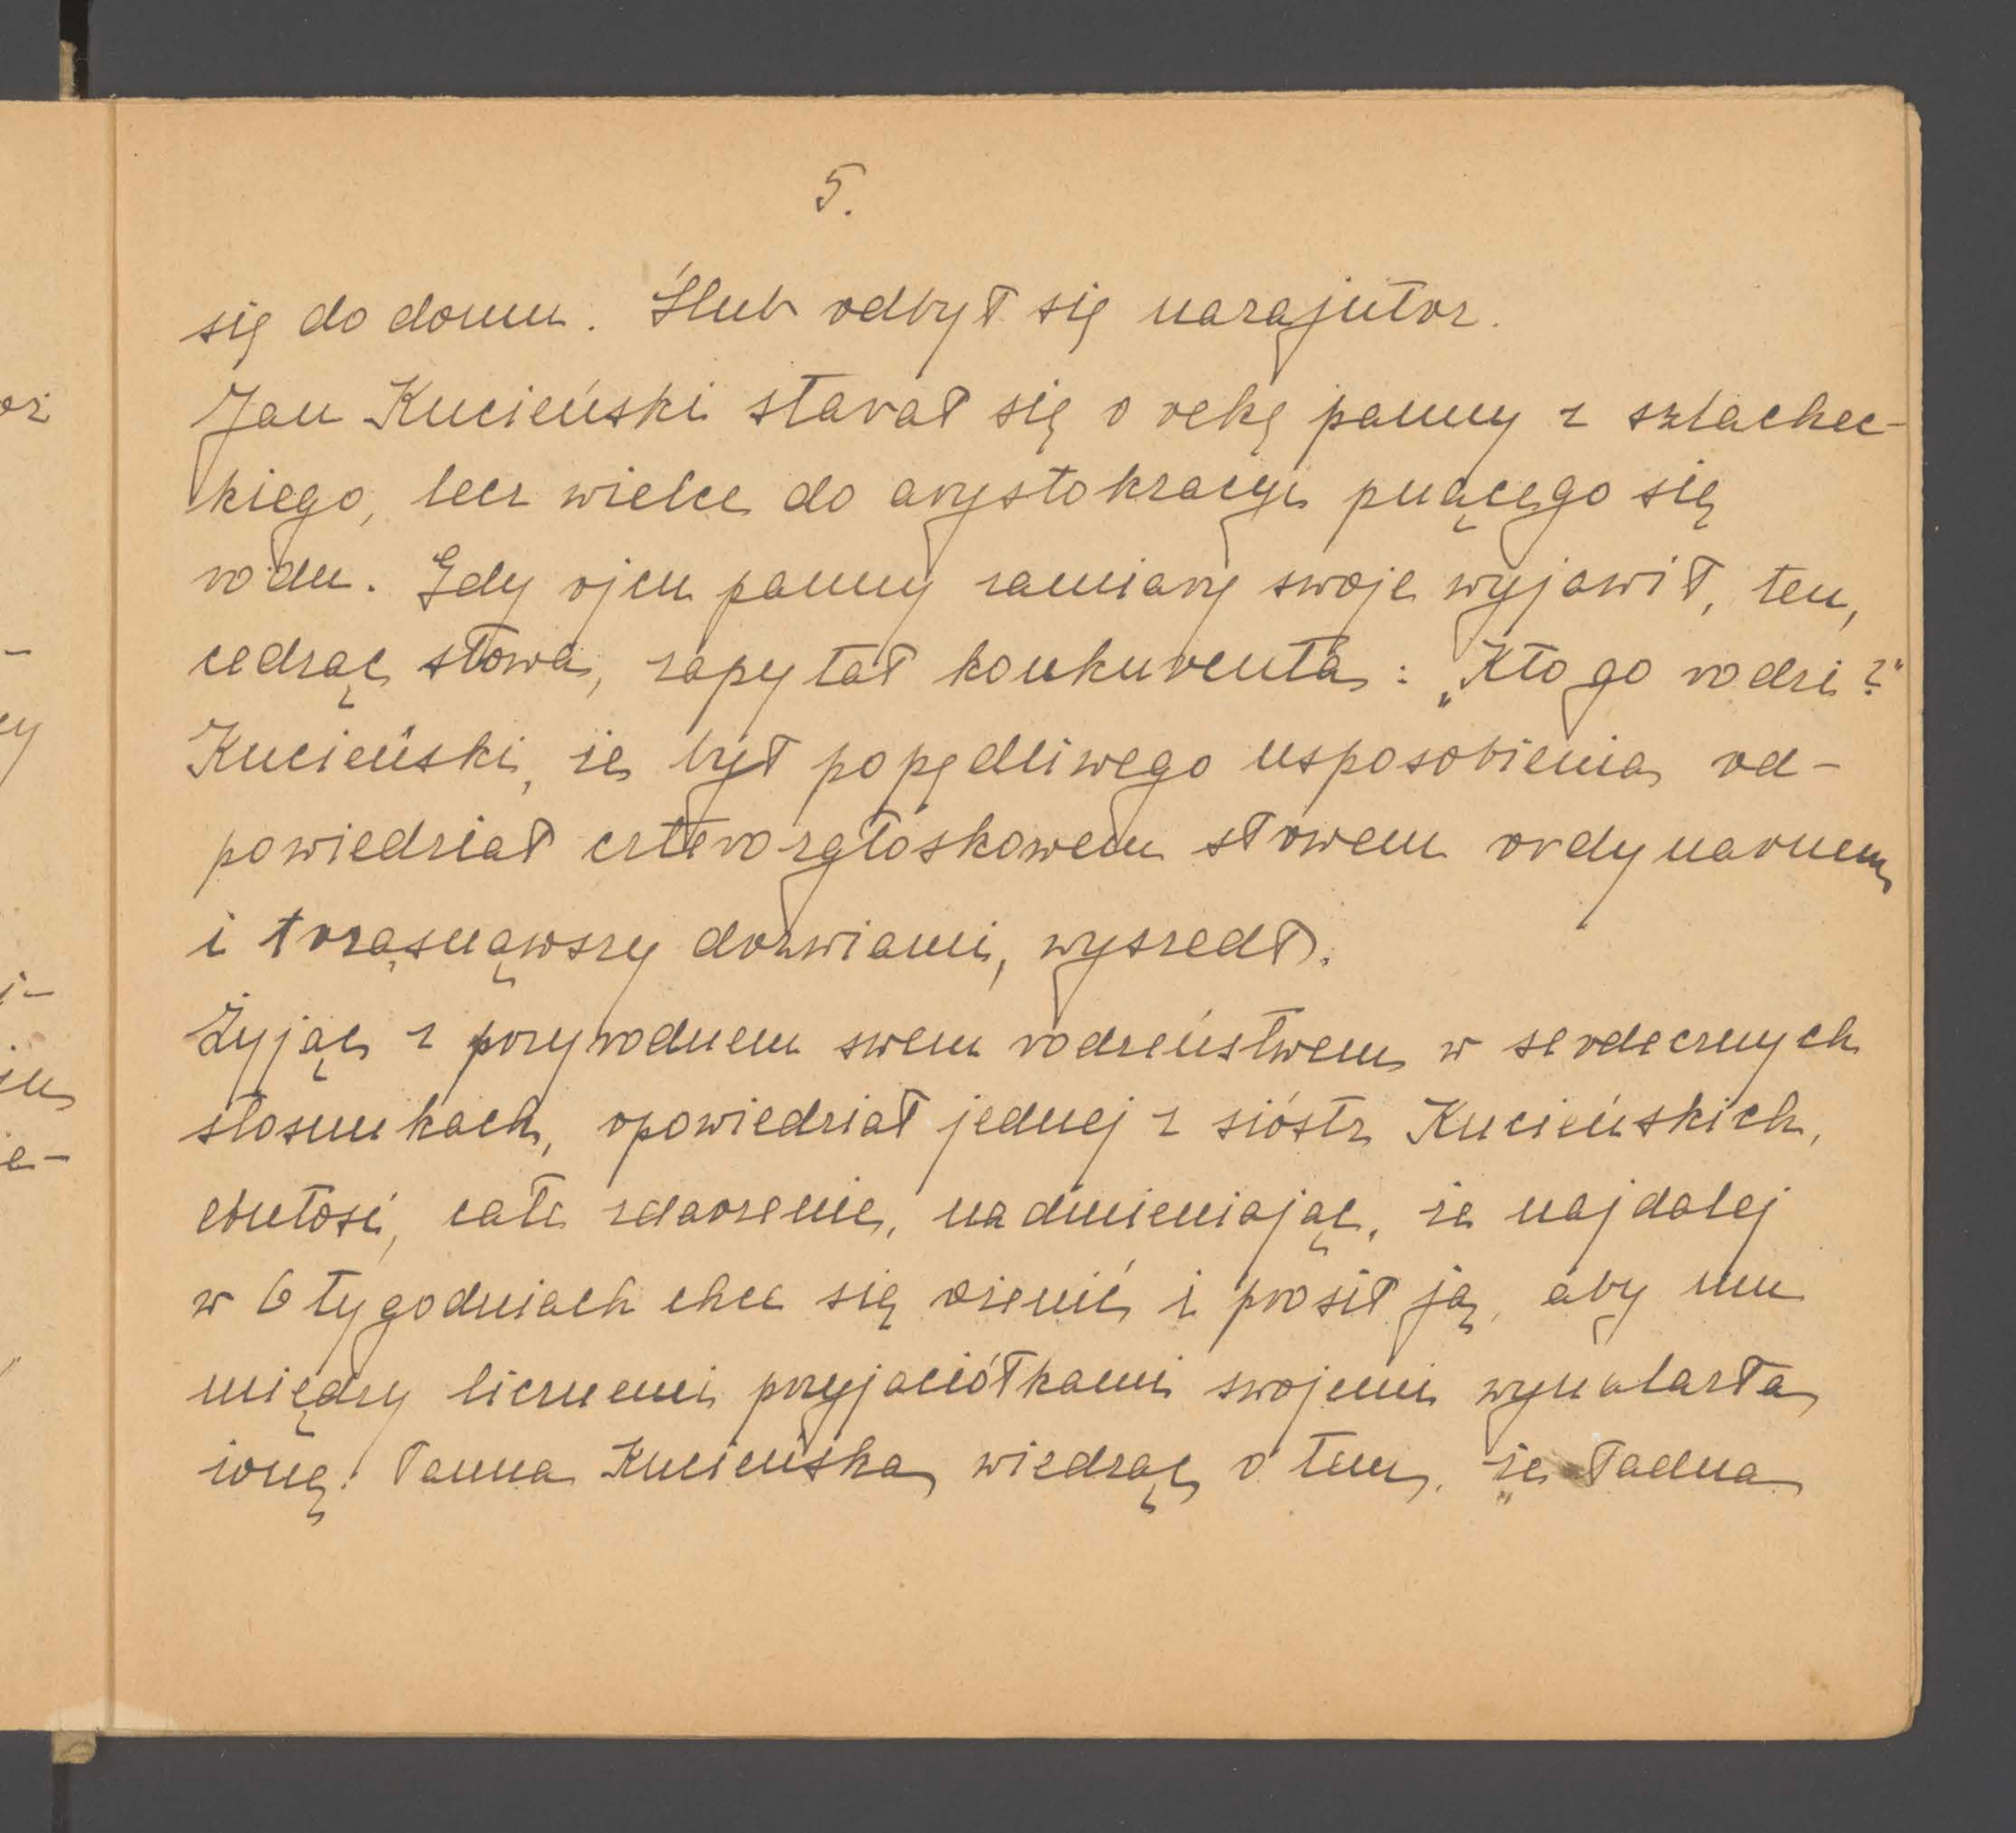 5.
się do domu. Ślub odbył się nazajutrz.
Jan Kucieński starał się o rękę panny z szlachec-
kiego, lecz wielce do arystokracyi pnącego się
rodu. Gdy ojcu panny zamiary swoje wyjawił, ten,
cedząc słowa, zapytał konkurenta: „Kto go rodzi?"
Kucieński, że był popędliwego usposobienia, od-
powiedział czterozgłoskowem słowem ordynarnem
i trząsnąwszy drzwiami, wyszedł.
Żyjąc z przyrodniem swem rodzeństwem w serdecznych
stosunkach, opowiedział jednej z sióstr Kucieńskich,
całe zdarzenie, nadmieniając, że najdalej
w 6 tygodniach chce się ożenić i prosił ją, aby mu
między licznemi przyjaciółkami swojemi wynalazła
żonę. Panna Kucieńska, wiedząc o tem, że ładna